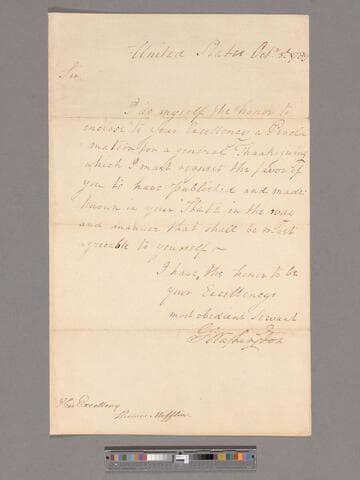 United States Octr. 3d. 1789
Sir
I do myself the honor to
enclose to your Excellency a Procla-
mation for a general Thanksgiving
which I must request the favor of
you to have published and made
known in your State in the way
and manner that shall be most
agreeable to yourself —
I have the honor to be
your Excellency's
most obedient Servant
Go: Washington
His Excellency
Thomas Mifflin